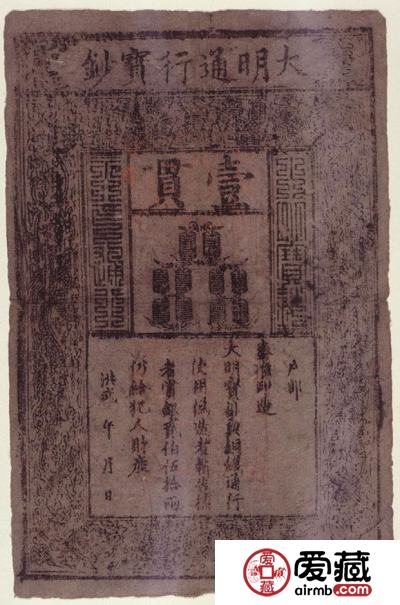 大明通行寶鈔
壹貫
大明寶鈔
天下通行
戶部
奏准印造
大明寶鈔與銅錢通行
使用偽造者斬告捕
者賞銀貳伯伍拾兩
仍給犯人財產
洪武 年 月 日
爱藏
airmb.com